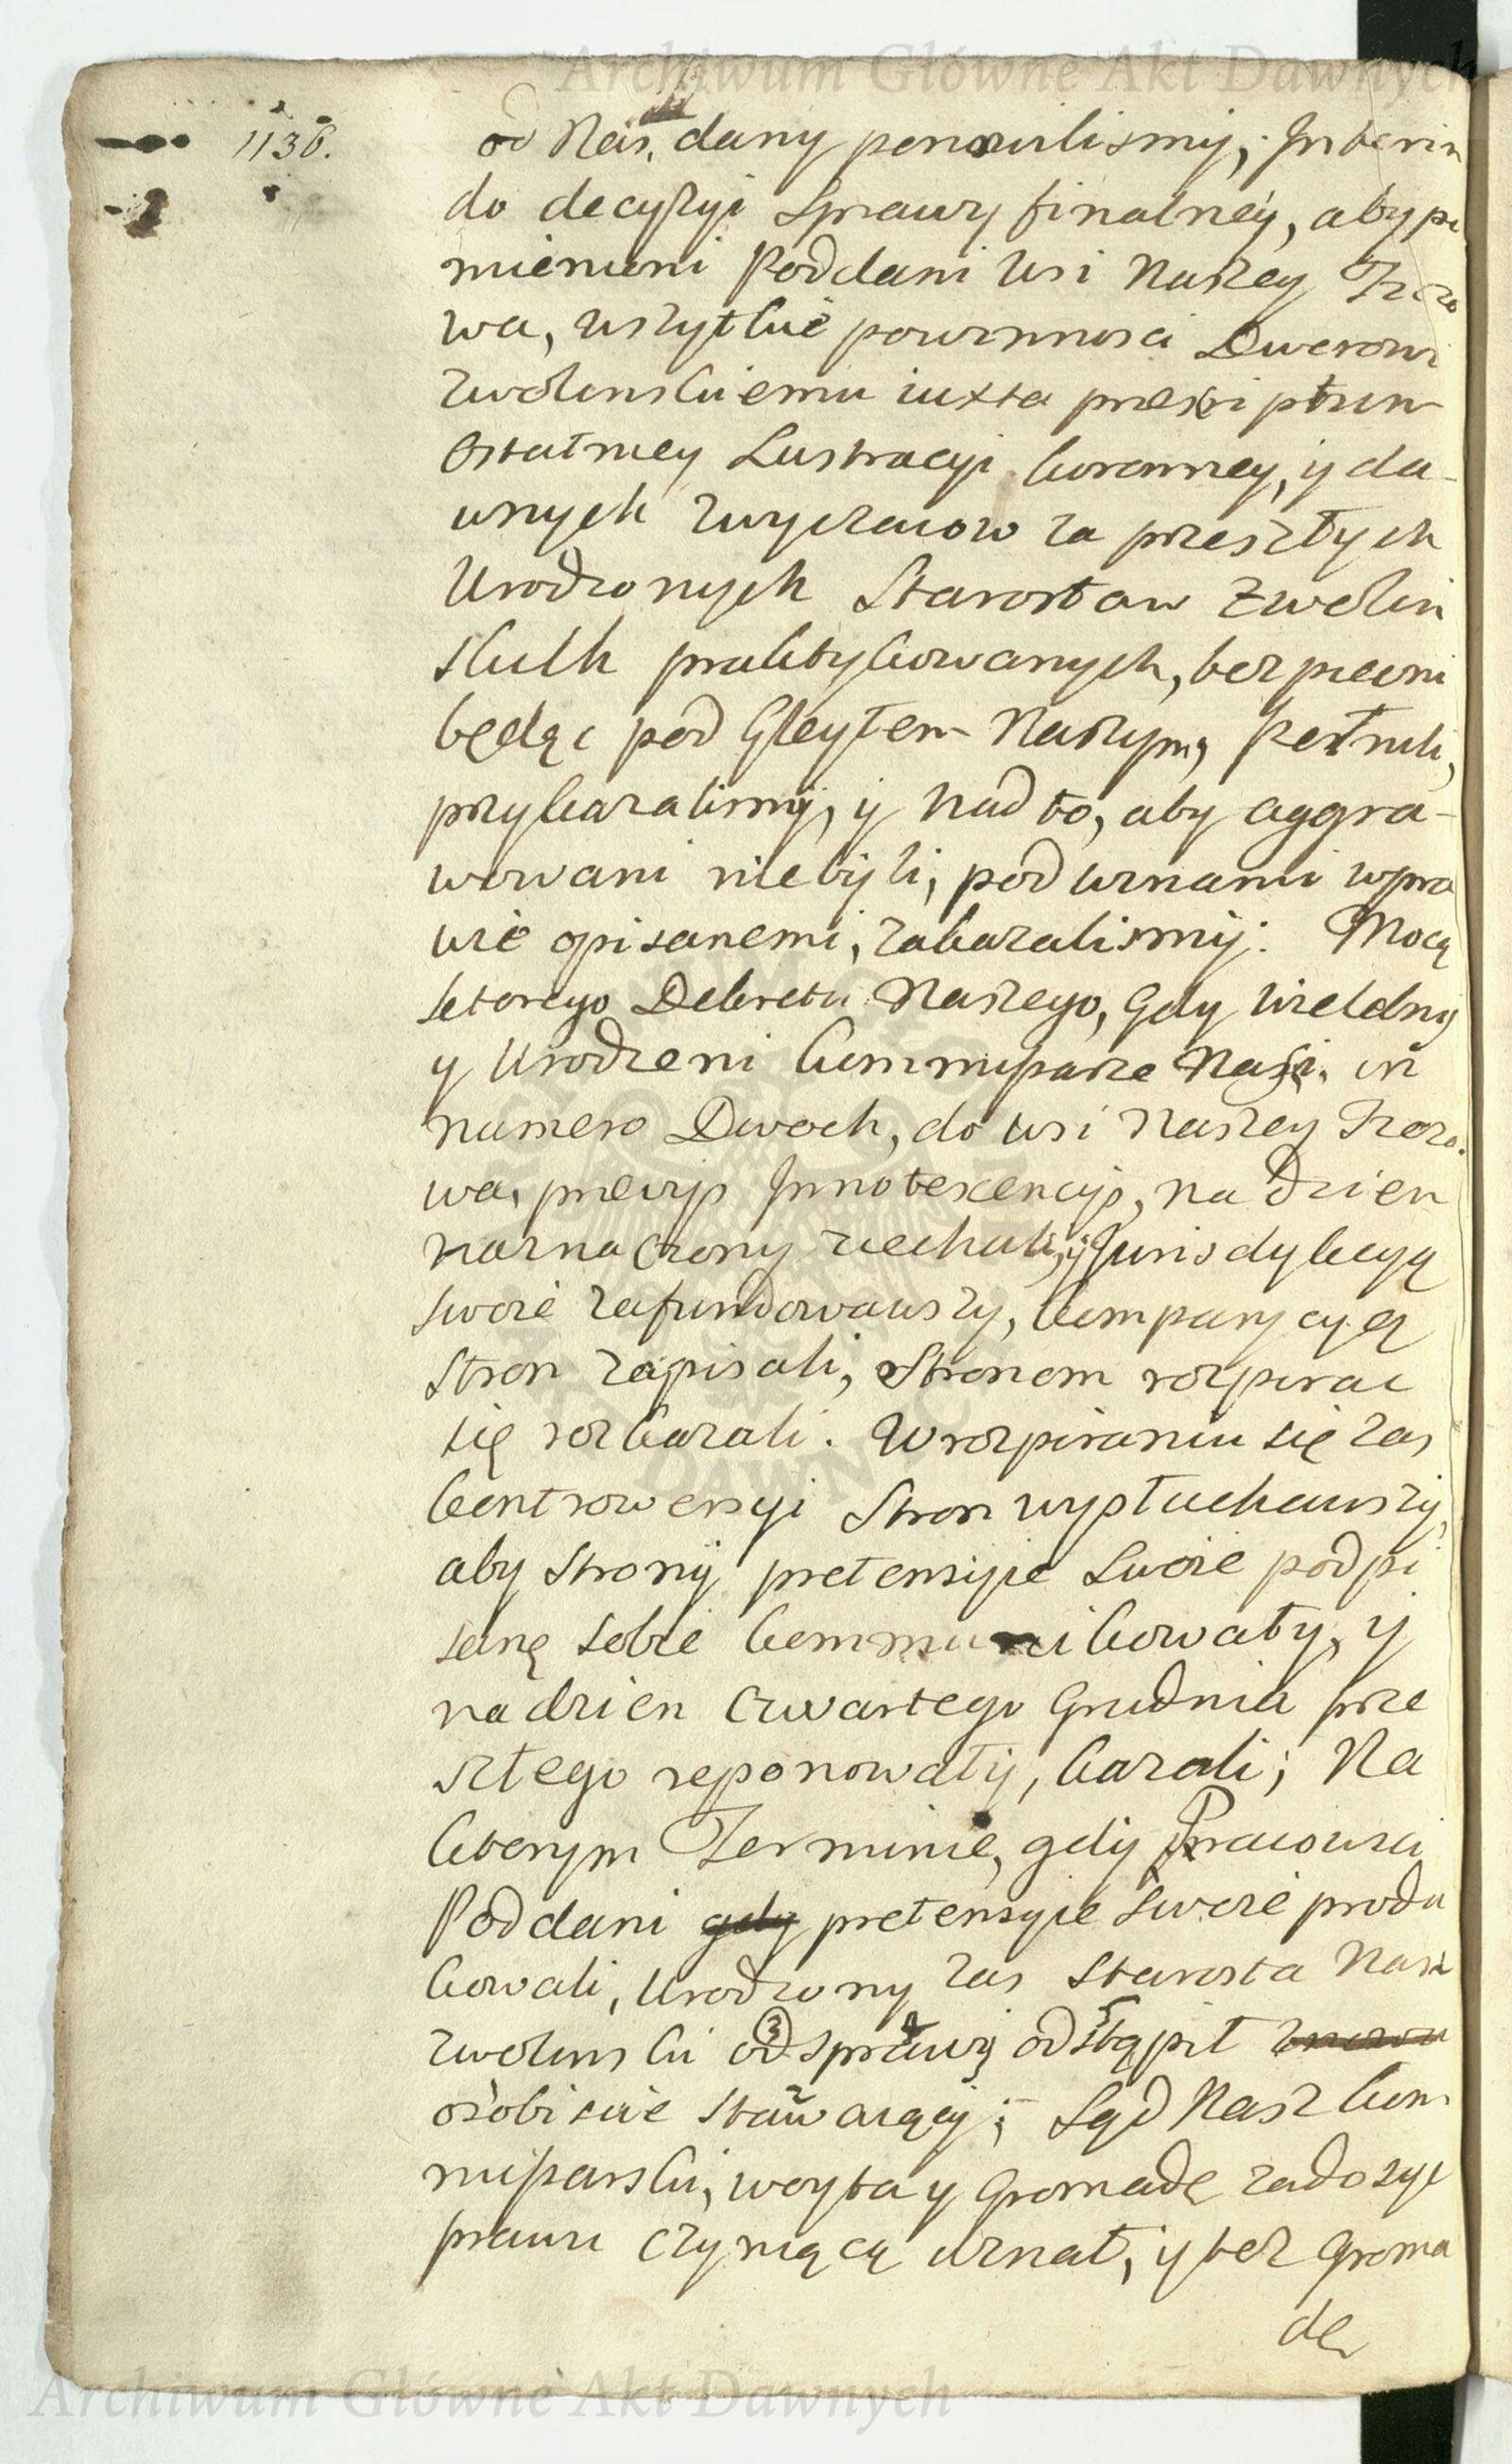 Archiwum Główne Akt Dawnych
1136.
od Nas, dany ponowilismy; Interim
do decyzyi Sprawy finalney, aby po
mienieni Poddani wsi Naszey Trzco
wa, wszytkie powinnosci Dworowi
Zwolinskiemu iuxta praescriptum
Ostatniey Lustracyi koronney, y da-
wnych zwyczaiow za przeszłych
Urodzonych Starostow Zwolin
skich praktykowanych, bezpieczni
będąc pod Gleytem Naszym, pełnili,
przykazalismy, y nad to, aby aggra-
wowani niebyli, pod winami wpra
wie opisanemi, zakazalismy: Mocą
ktorego Dekretu Naszego, Gdy Wielebny
y Urodzeni Kommissarze Nasi, in
numero Dwoch, do wsi Naszey Trzco
wa, praevys Innotescencys, na dzien
naznaczony ziechali, y Jurisdykcyą
swoie zafundowawszy, komparycyą
Stron zapisali, Stronom rozpierac
się rozkazali. W rozpieraniu się zas
kontrowersyi Stron wysłuchawszy,
aby Strony pretensyie Swoie podpi
saną sobie kommunikowały, y
na dzien Czwartego Grudnia prze
szłego reponowały, kazali; Na
ktorym Terminie, gdy Pracowici
Poddani gdy pretensyie Swoie produ
kowali, Urodzony zas Starosta Nasz
Zwolinski od sprawy odstąpił
osobiscie stawaiący; Sąd Nasz kom
missarski, woyta y Gromadę zadosyc
prawu czyniącą uznał, y tez Groma
dę
Archiwum Główne Akt Dawnych